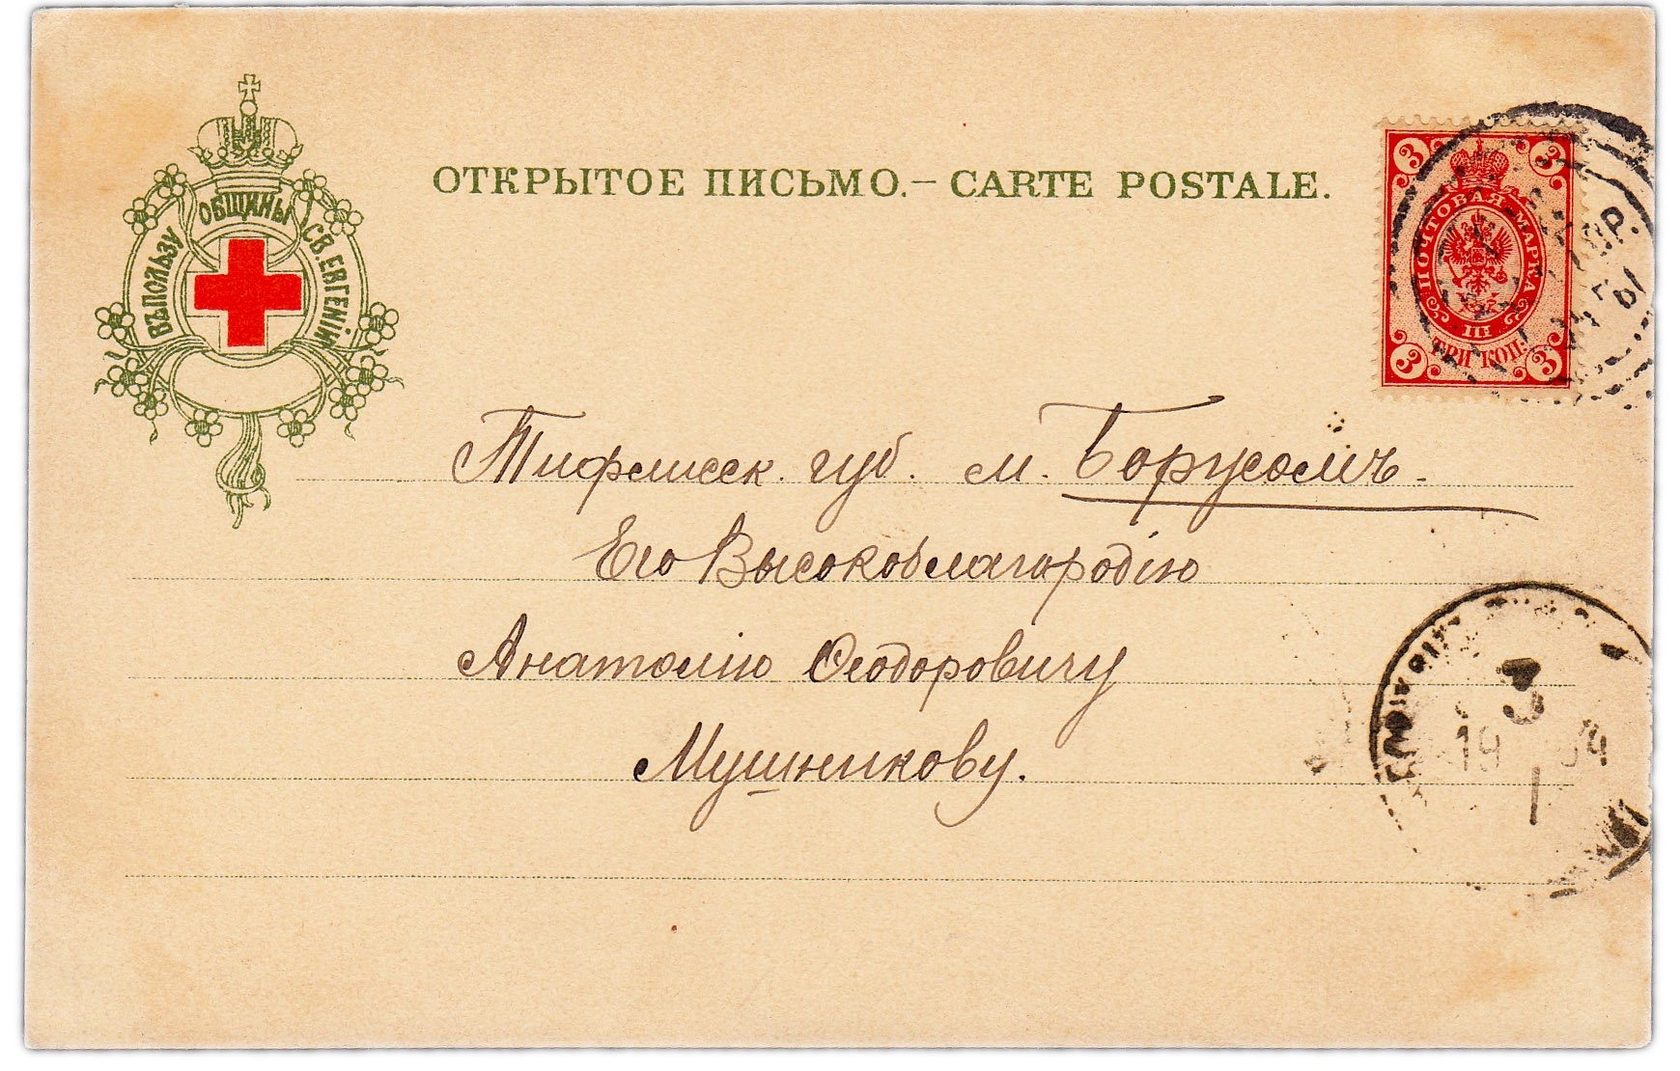 ВЪ ПОЛЬЗУ ОБЩИНЫ СВ. ЕВГЕНІИ
ОТКРЫТОЕ ПИСЬМО.— CARTE POSTALE.
3 3
ПОЧТОВАЯ МАРКА
III
ТРИ КОП.
3 3
Тифлисск. губ. м. Боржомъ.
Его Высокоблагородію
Анатолію Ѳеодоровичу
Мушникову.
19 04
1